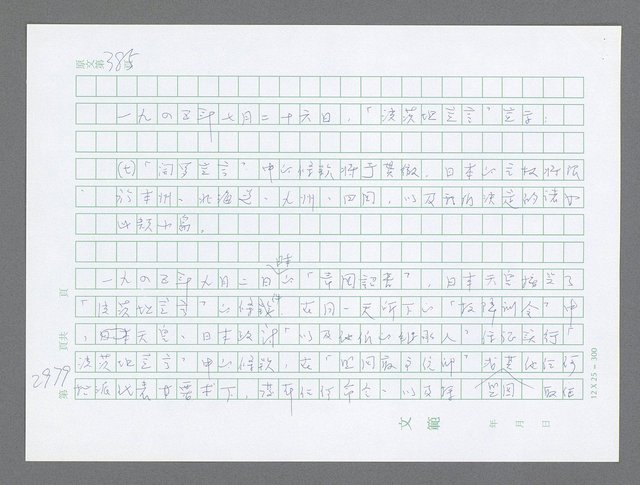 原文第385頁
一九四五年七月二十六日，「波茨坦宣言」宣示：
(七)「開羅宣言」中的條款將予貫徹，日本的主權將限
於本州、北海道、九州、四國，以及我們決定的諸
小島。
一九四五年九月二日的「帝國詔書」，日本天皇接受了
「波茨坦宣言」的條款，在同一天所下的「投降訓令」中
，日本天皇、日本政府「以及他們的繼承人」保證實行「
波茨坦宣言」中的條款，在「四國最高統帥」或其他任何
代表的要求下，任何命令，以及 盟國 取
頁
頁共
2979
第
文範
年 月 日
12X25－300